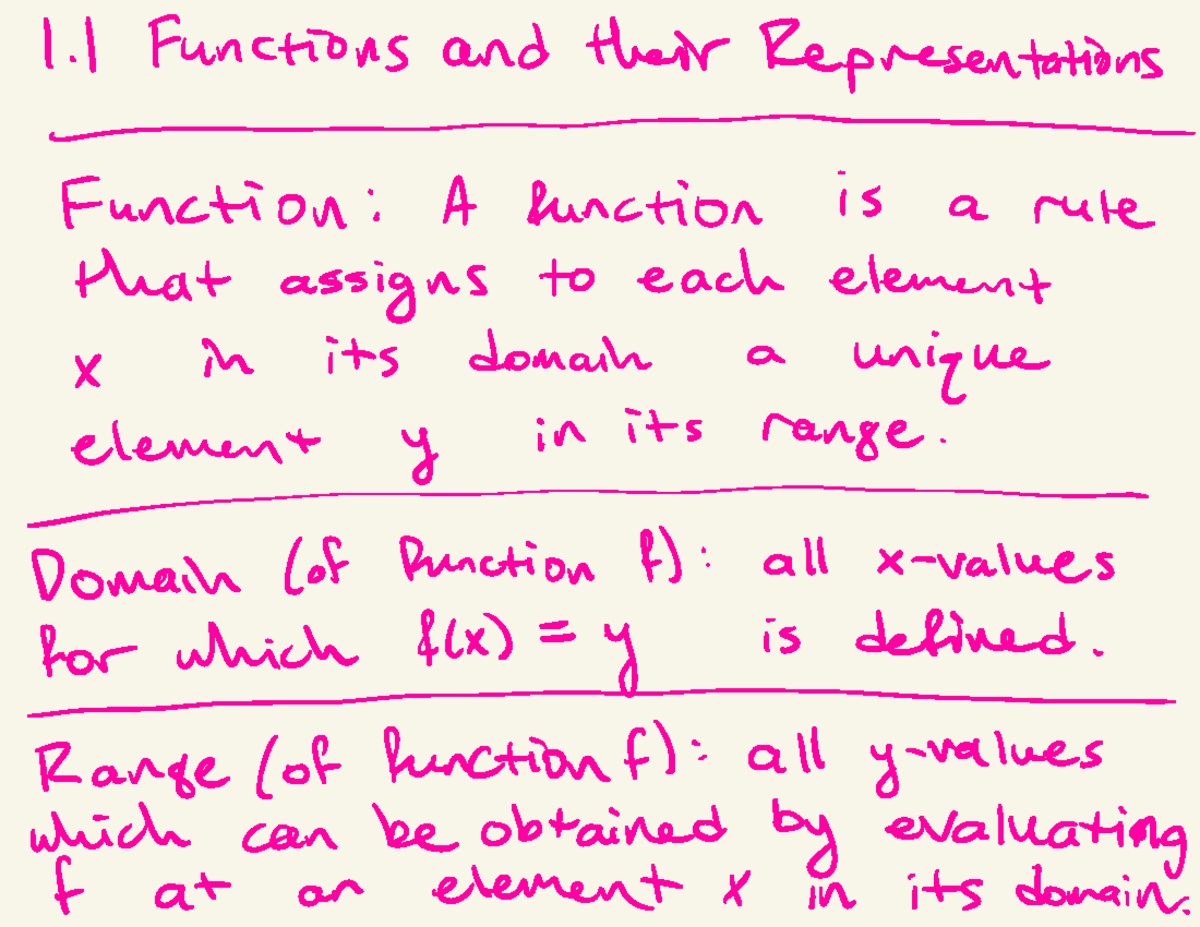 1.1 Functions and their Representations
Function: A function is a rule
that assigns to each element
x in its domain a unique
element y in its range.
Domain (of function f): all x-values
for which f(x) = y is defined.
Range (of function f): all y-values
which can be obtained by evaluating
f at an element x in its domain.